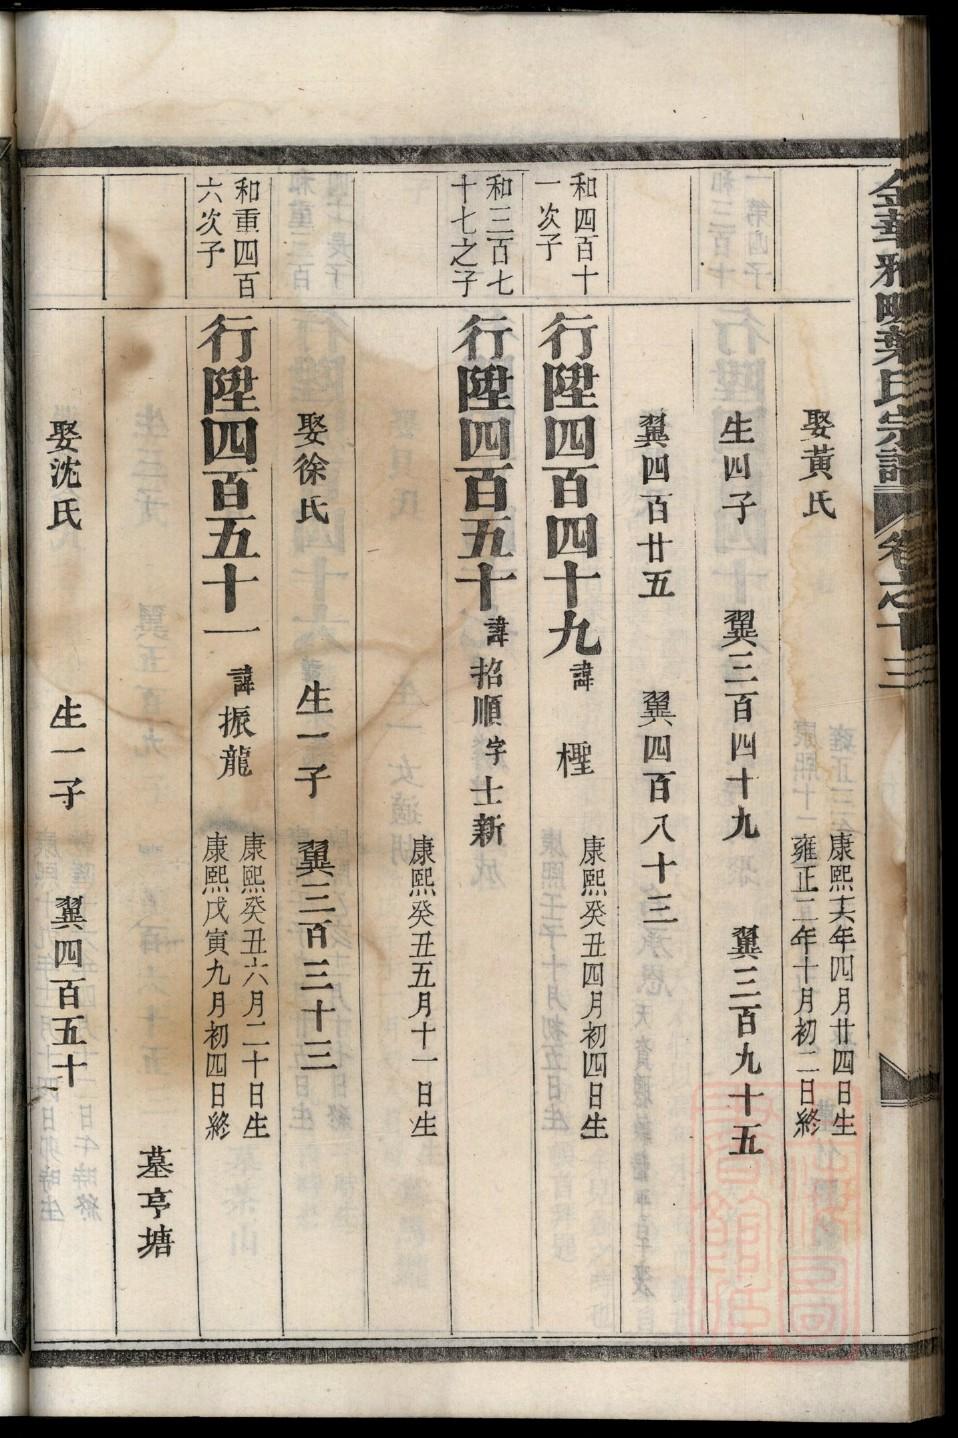 金華雅畈葉氏宗譜 卷之十三
娶黃氏
康熙十六年四月廿四日生
雍正二年十月初二日終
生四子 翼三百四十九 翼三百九十五
翼四百廿五 翼四百八十三
和四百十
一次子
行陞四百四十九 諱 㮐
康熙癸丑四月初四日生
和三百七
十七之子
行陞四百五十 諱招順字士新
康熙癸丑五月十一日生
娶徐氏 生一子 翼三百三十三
和重四百
六次子
行陞四百五十一 諱振龍
康熙癸丑六月二十日生
康熙戊寅九月初四日終
墓亭塘
娶沈氏 生一子 翼四百五十